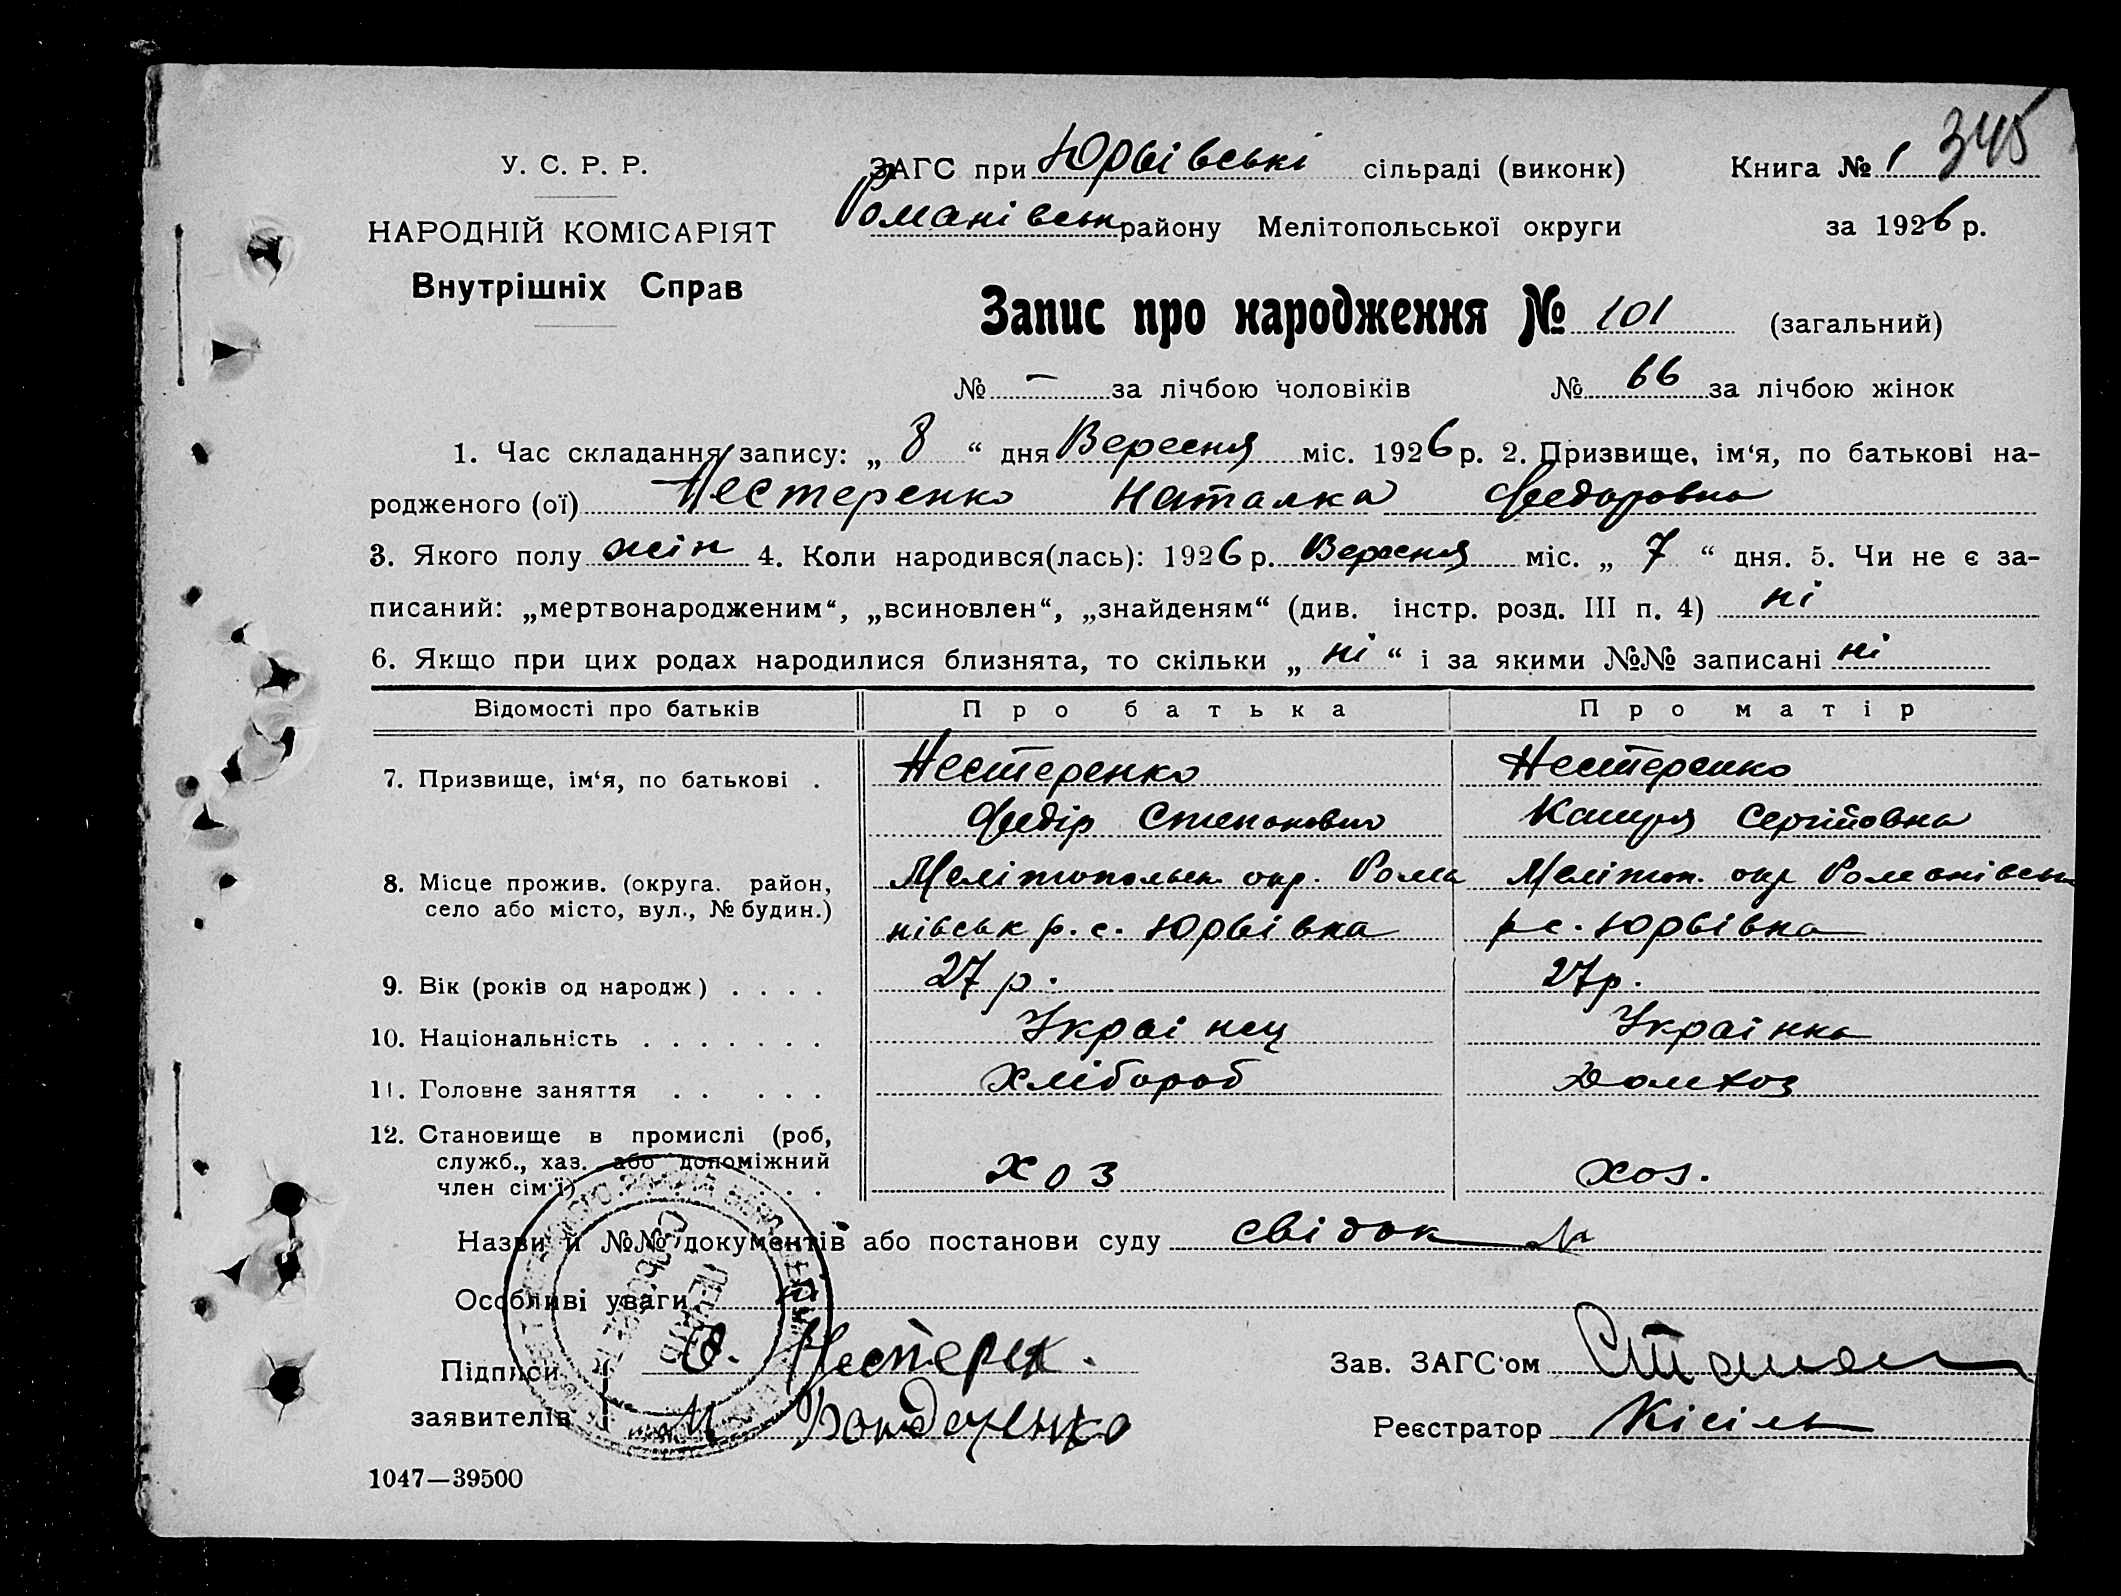 345
У. С. Р. Р.
ЗАГС при Юрьівські сільраді (виконк) Книга № 1
Романівськ району Мелітопольської округи за 1926 р.
НАРОДНІЙ КОМІСАРІЯТ
Внутрішніх Справ
Запис про народження № 101 (загальний)
№ — за лічбою чоловіків № 66 за лічбою жінок
1. Час складання запису: „ 8 “ дня Вересня міс. 1926 р. 2. Призвище, ім‘я, по батькові на-
родженого (ої) Нестеренко Наталка Федоровна
3. Якого полу жін 4. Коли народився(лась): 1926 р. Вересня міс. „ 7 “ дня. 5. Чи не є за-
писаний: „мертвонародженим“, „всиновлен“, „знайденям“ (див. інстр. розд. III п. 4) ні
6. Якщо при цих родах народилися близнята, то скільки „ ні “ і за якими №№ записані ні
Відомості про батьків Про батька Про матір
7. Призвище, ім‘я, по батькові . Нестеренко Нестеренко
Федір Степанович Сергійовна
8. Місце прожив. (округа. район, Мелітопольськ окр. Рома Меліт. окр Романівськ
село або місто, вул., № будин.) нівськ р. с. Юрьівка р с. Юрьівка
9. Вік (років од народж) . . . . 27 р. 27 р.
10. Національність . . . . . . . Украінец Украінка
11. Головне заняття . . . . . Хлібороб Домхоз
12. Становище в промислі (роб,
служб., хаз. або допоміжний
член сім‘ї) хоз хоз.
Назви й №№ документів або постанови суду свідок №
Особливі уваги ні
Підписи Ф. Нестерен. Зав. ЗАГС‘ом
заявителів М Бондаренко Реєстратор Кісіль
1047—39500